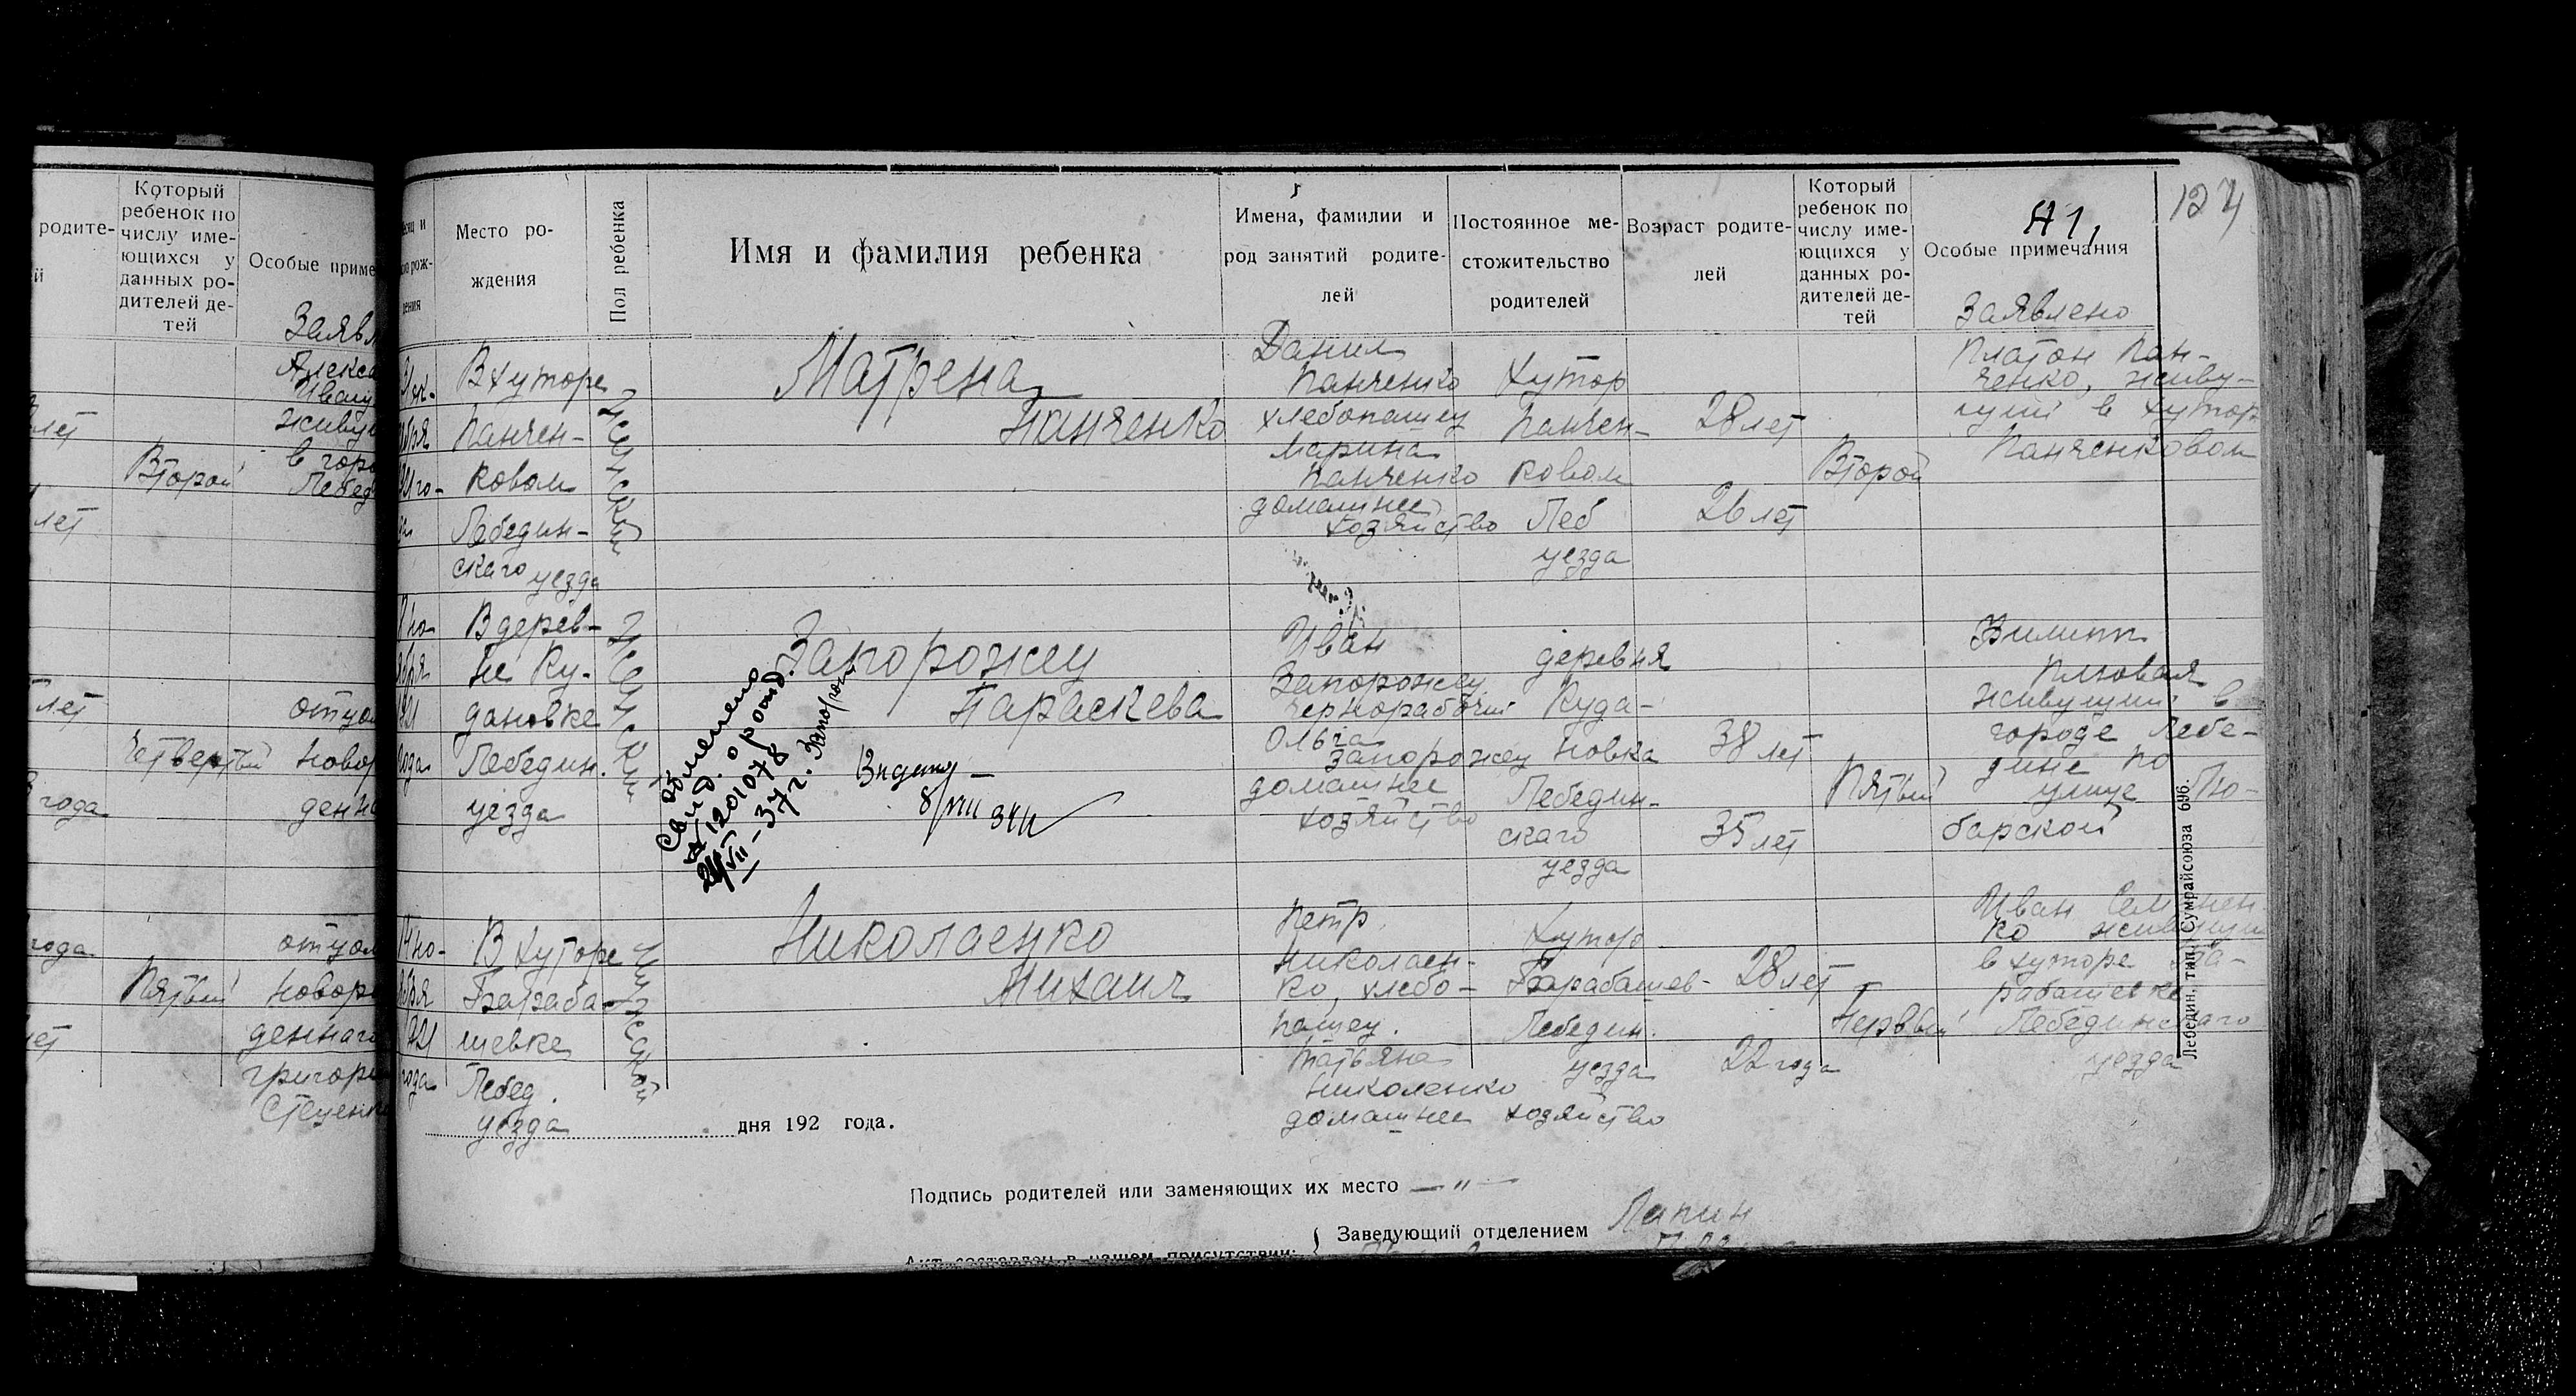 родите-
й
Который
ребенок по
числу име-
ющихся у
данных ро-
дителей де-
тей
Особые приме
Заявл
Алекса
живу
в горо
Лебед
Второй
лет
лет
лет
Четвертый
года
отцом
новор
денн
года
Пятый
отцом
новоро
деннаго
григори
Стеценк
124
А 1,
Место ро-
ждения
Пол ребенка
Имя и фамилия ребенка
Имена, фамилии и
род занятий родите-
лей
Постоянное ме-
стожительство
родителей
Возраст родите-
лей
Который
ребенок по
числу име-
ющихся у
данных ро-
дителей де-
тей
Особые примечания
Заявлено
В хуторе
Панчен-
ковом
Лебедин-
скаго уезда
Женский
Матрена
Панченко
Данил
Панченко
хлебопашец
Марина
Панченко
домашнее
хозяйство
Хутор
Панчен-
ковом
Леб
уезда
28 лет
26 лет
Второй
Платон Пан-
ченко, живу-
щий в хутор
Панченковом
В дерев-
не Ку-
дановке
Лебедин.
уезда
Женский
Запорожец
Параскева
обменено
Свид. о рожд.
№ 1201078
24/VII-37 г.
8/VIII 34
Иван
Запорожец
чернорабочий
Ольга
Запорожец
домашнее
хозяйство
деревня
Куда-
новка
Лебедин-
скаго
уезда
38 лет
35 лет
Пятый
Филипп
живущий в
городе Лебе-
дине по
улице Лю-
барской
14 но-
ября
921
года
В хуторе
Бараба-
шевке
Лебед.
уезда
Мужской
Николаенко
Михаил
Петр
Николаен-
ко, хлебо-
пашец.
Татьяна
Николенко
домашнее хозяйство
Хутор
Барабашев-
Лебедин.
уезда
28 лет
22 года
Первый
Иван Семенен
ко живущий
в хуторе Ба-
рабашевке
Лебединскаго
уезда
дня 192 года.
Подпись родителей или заменяющих их место — " —
Заведующий отделением Лапин
Акт составлен в нашем присутствии:
Лебедин. тип. Сумрайсоюза 696.